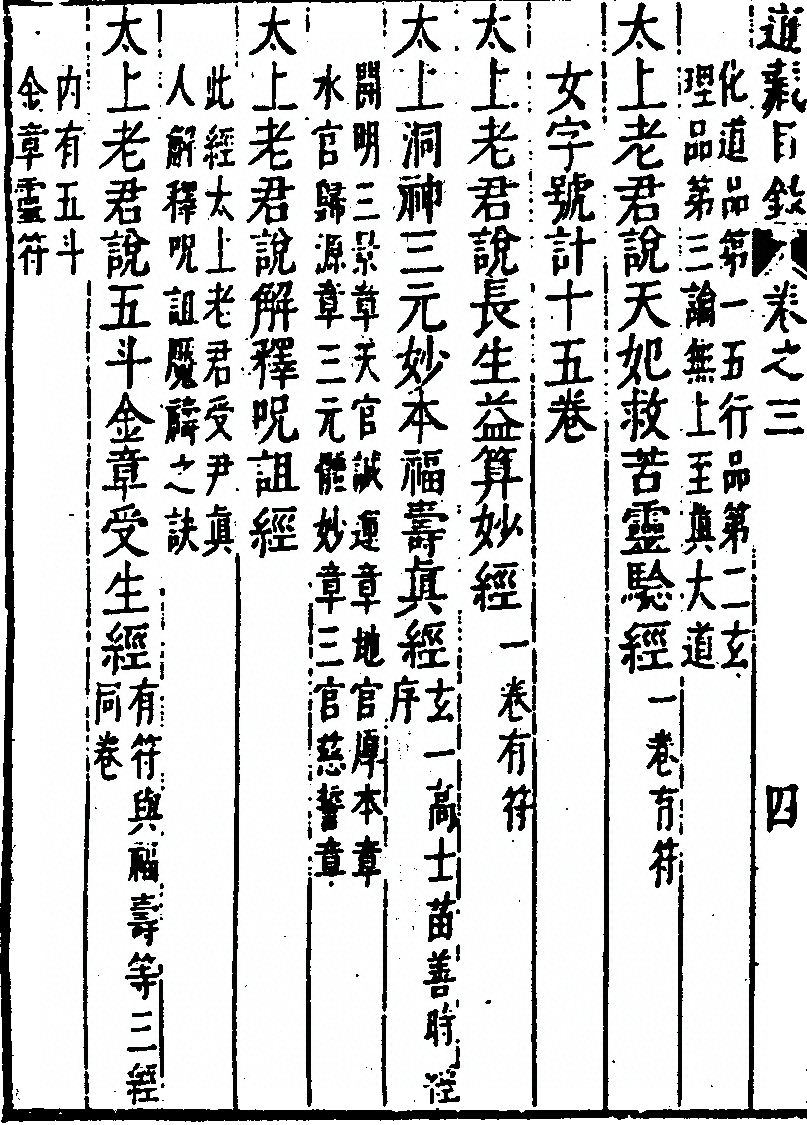 道藏目錄 卷之三 四
化道品第一五行品第二玄
理品第三論無上至眞大道
太上老君說天妃救苦靈驗經一卷有符
女字號計十五卷
太上老君說長生益算妙經一卷有符
太上洞神三元妙本福壽眞經玄一高士苗善時經
序
開明三景章天官誠運章地官厚本章
水官歸源章三元體妙章三官慈誓章
太上老君說解釋呪詛經
此經太上老君受尹眞
人解釋呪詛魘禱之訣
太上老君說五斗金章受生經有符與福壽等三經
同卷
內有五斗
金章靈符